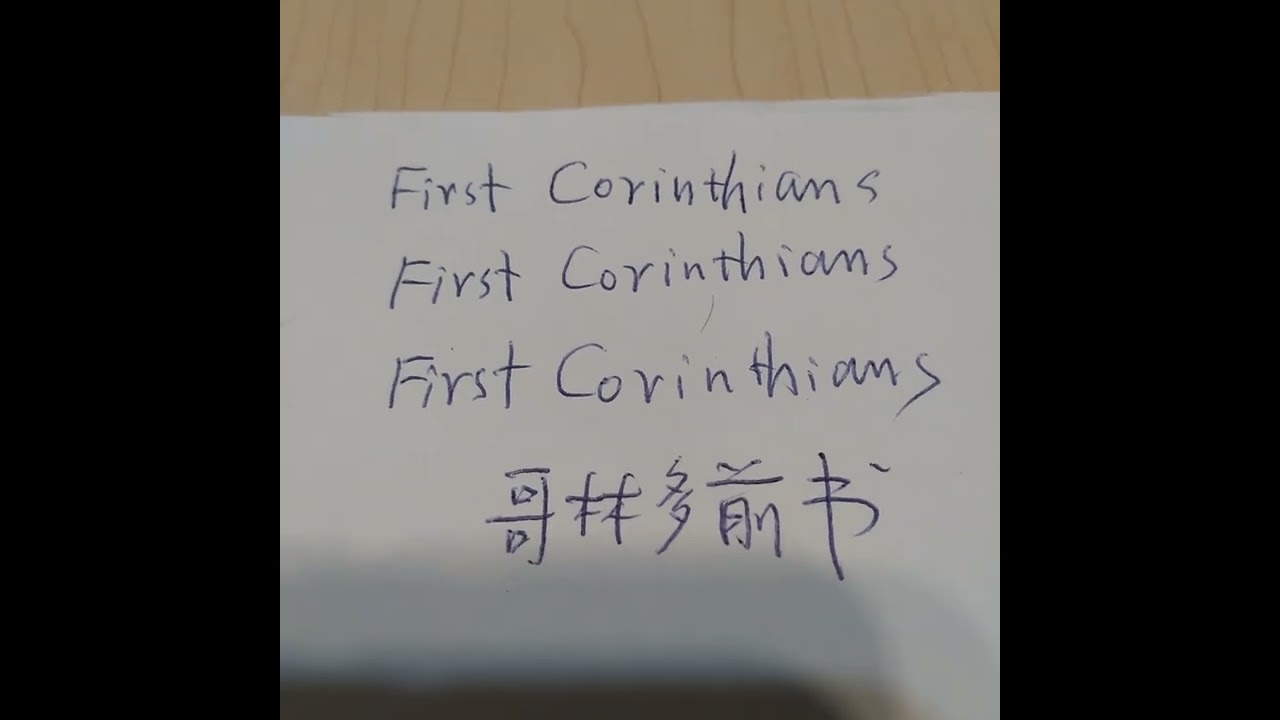 First Corinthians
First Corinthians
First Corinthians
哥林多前书